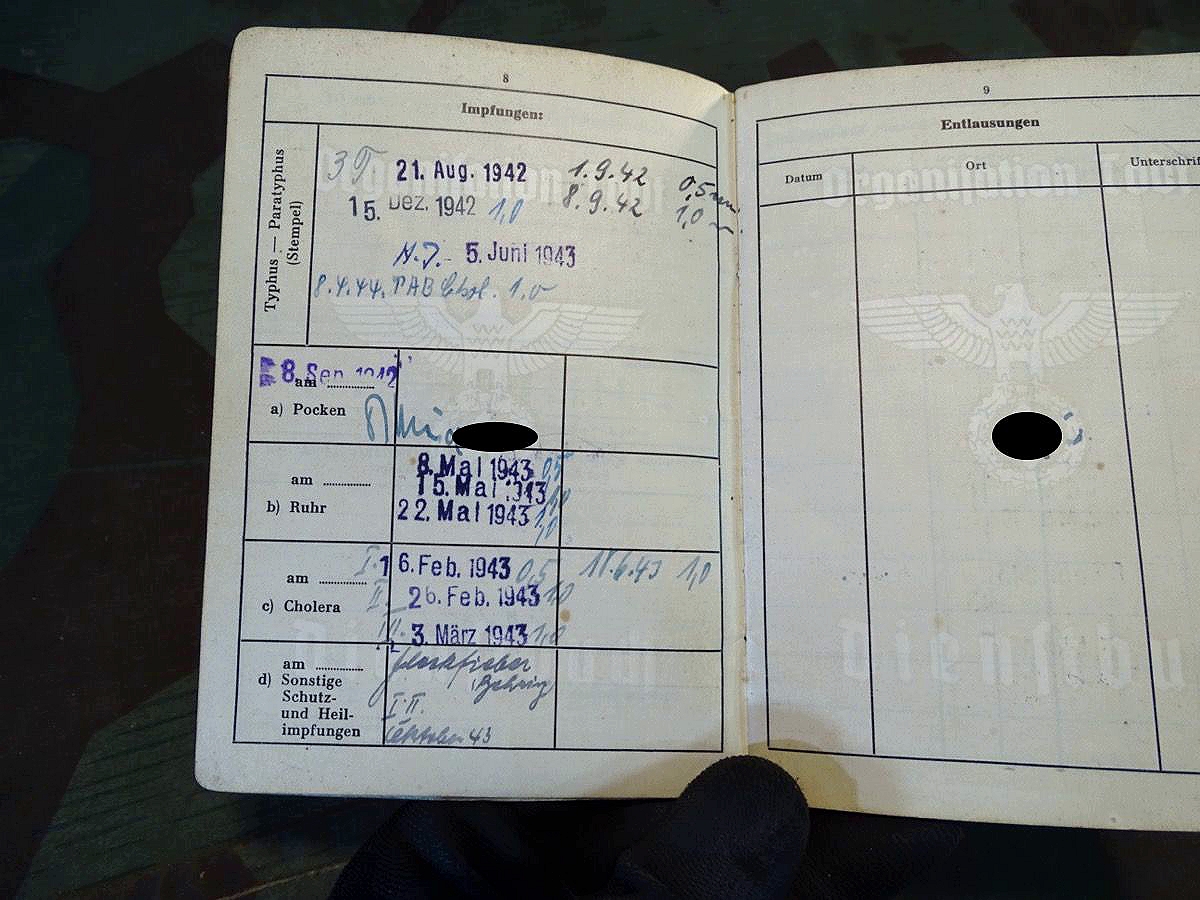 8
Impfungen:
Typhus — Paratyphus
(Stempel)
21. Aug. 1942 1.9.42 0,5
15. Dez. 1942 1,0 8.9.42 1,0
5. Juni 1943
8.4.44. TAB Chol. 1,0
8. Sep. 1942
am ............
a) Pocken
8. Mai 1943 0,5
am ............
15. Mai 1943 1,0
b) Ruhr
22. Mai 1943 1,0
I. 16. Feb. 1943 0,5 18.6.43 1,0
am ............
II. 26. Feb. 1943 1,0
c) Cholera
III. 3. März 1943 1,0
am ............
Fleckfieber
Behring
d) Sonstige
Schutz-
und Heil-
impfungen
I. II.
Oktober 43
9
Entlausungen
Datum
Ort
Unterschrif
Organisation Todt
Organisation Todt
Dienstbuch
Dienstbu